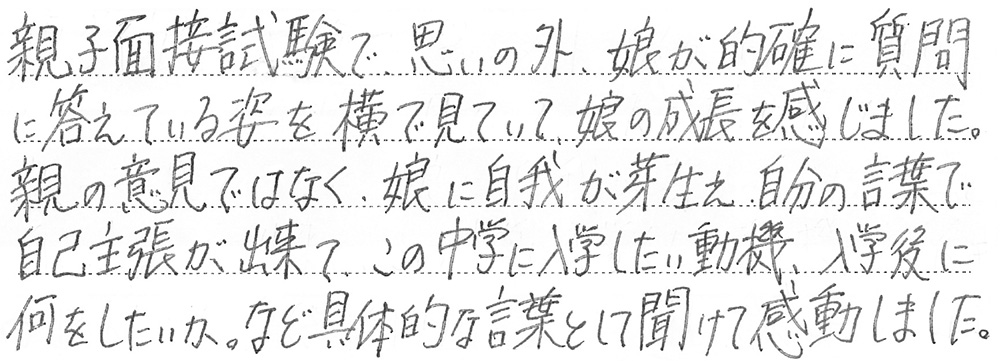 親子面接試験で、思いの外、娘が的確に質問
に答えている姿を横で見ていて、娘の成長を感じました。
親の意見ではなく、娘に自我が芽生え、自分の言葉で
自己主張が出来て、この中学に入学したい動機、入学後に
何をしたいか。など具体的な言葉として聞けて感動しました。